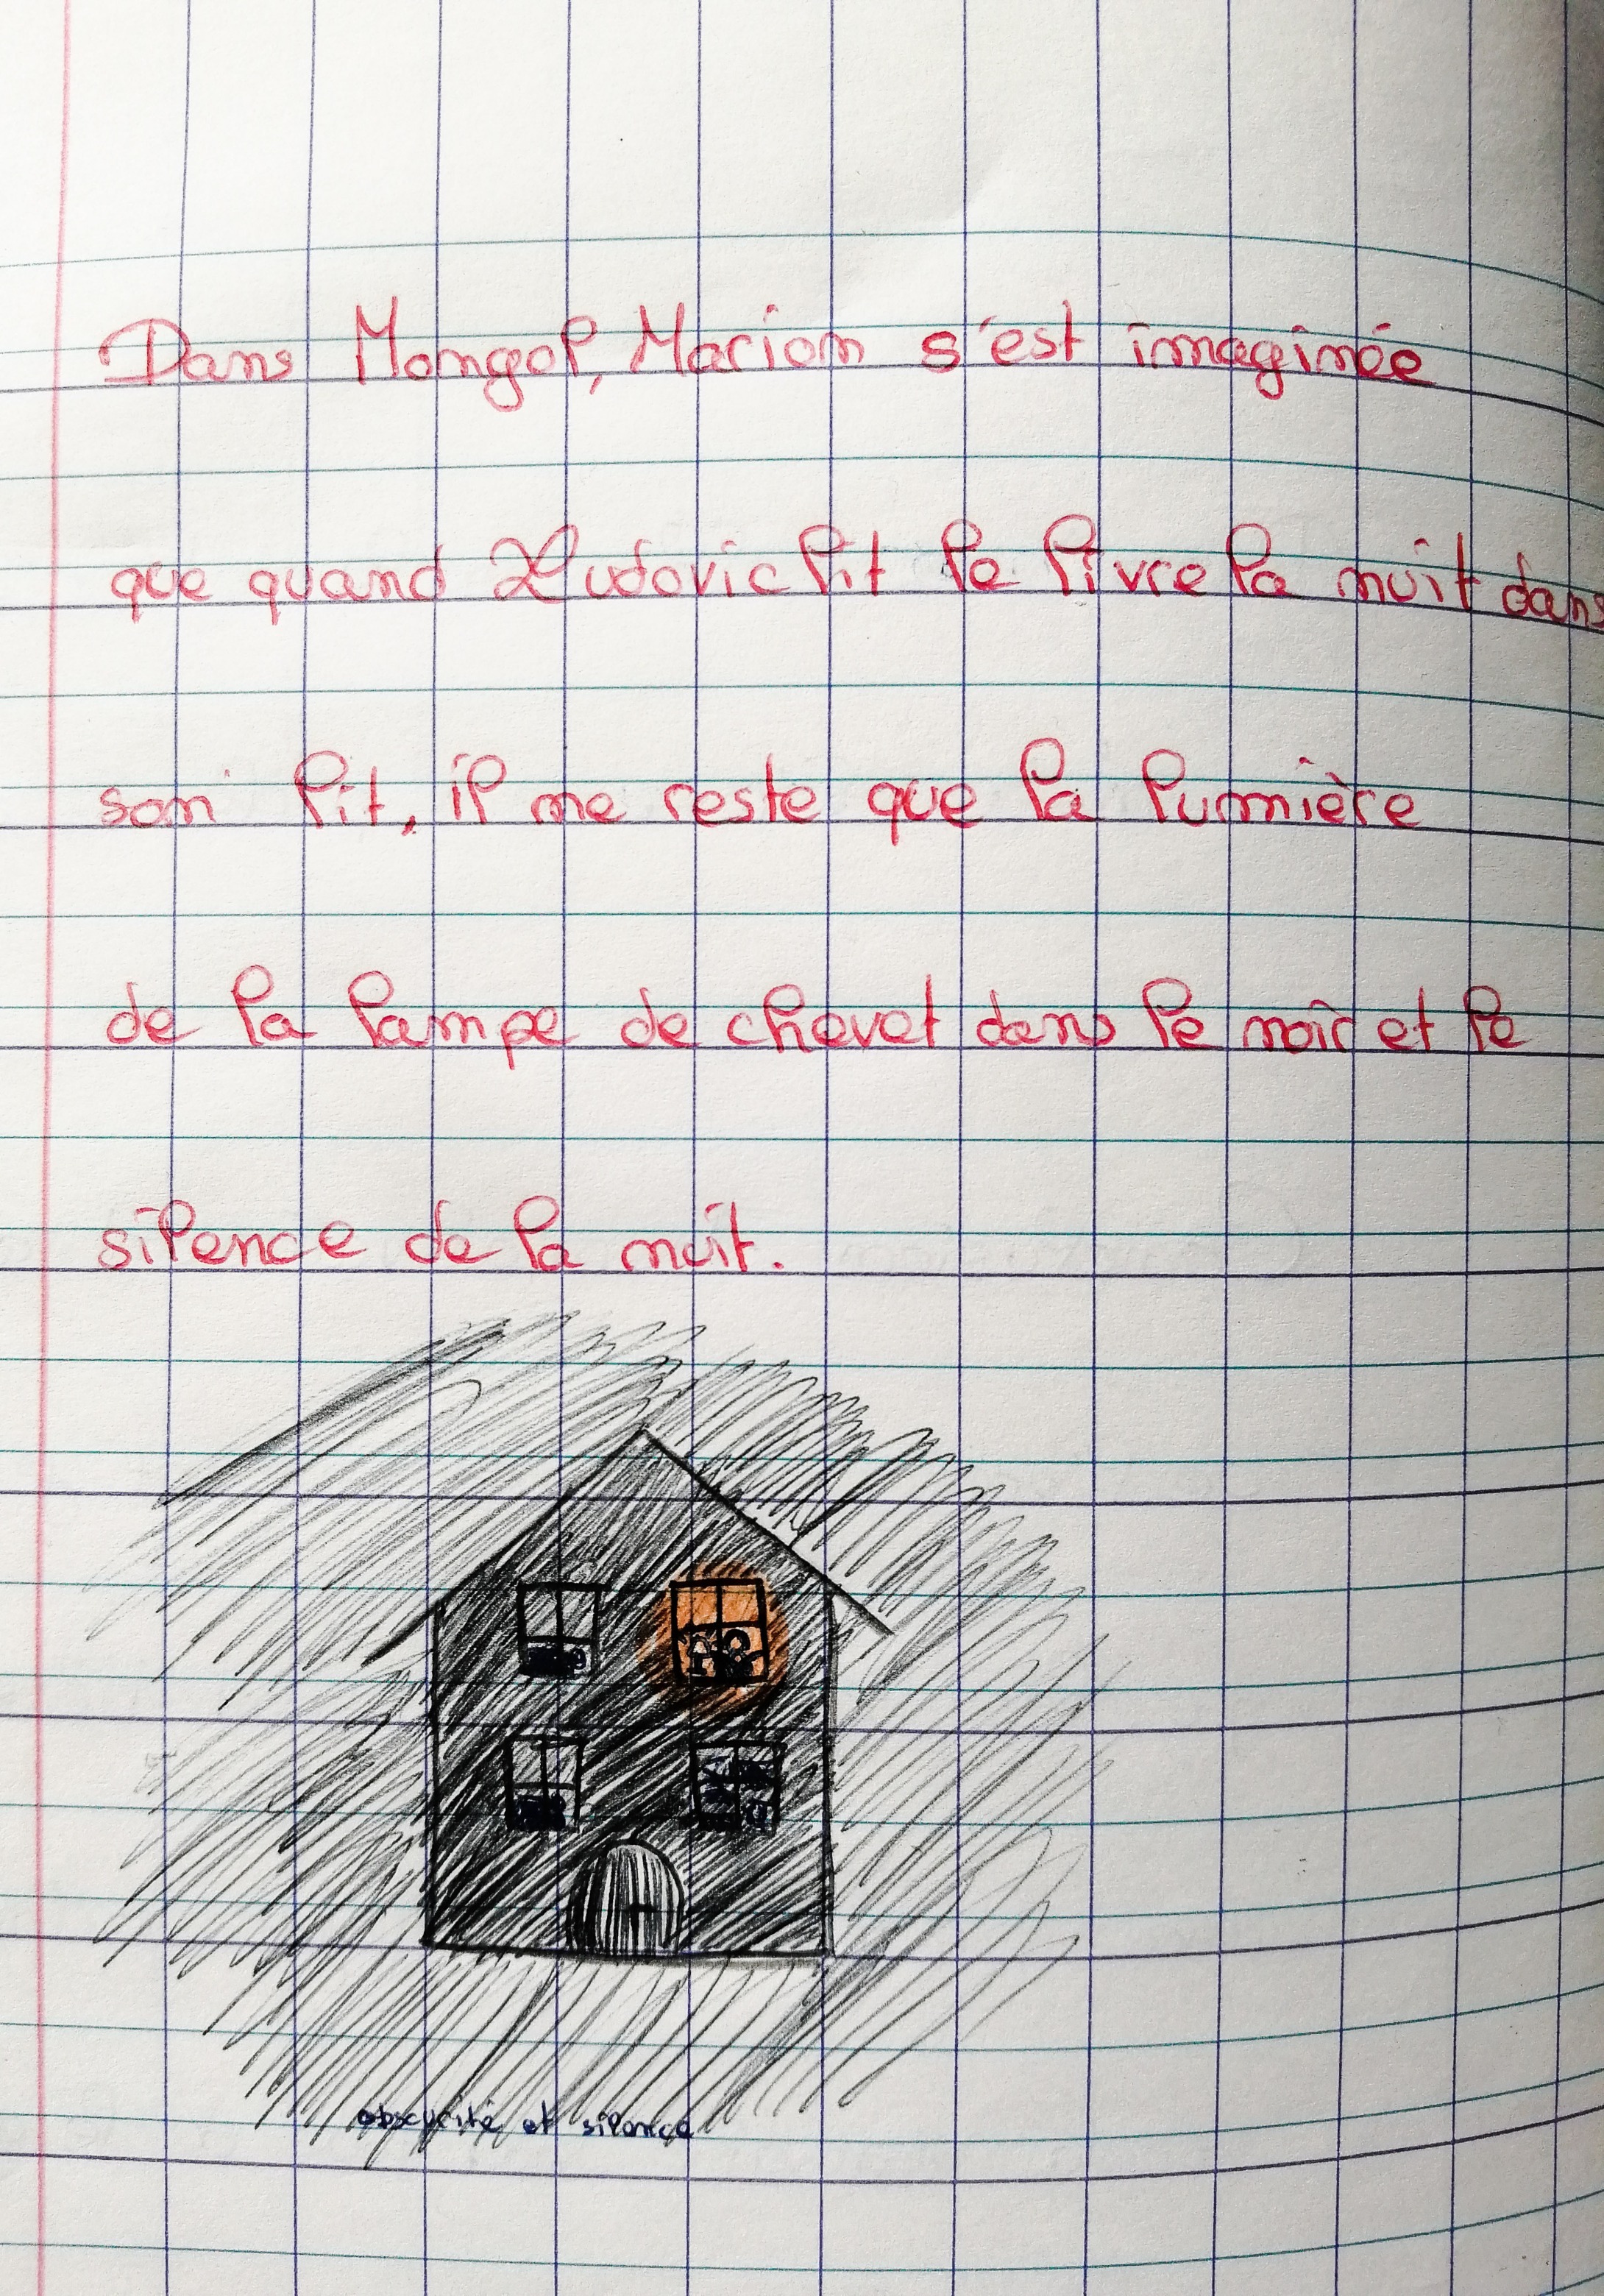 Dans Mongol, Marion s'est imaginée
que quand Ludovic lit le livre la nuit dans
son lit, il ne reste que la lumière
de la lampe de chevet dans le noir et le
silence de la nuit.
obscurité et silence